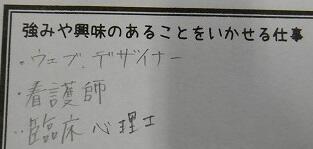 強みや興味のあることをいかせる仕事
・ウェブ.デザイナー
・看護師
・臨床心理士